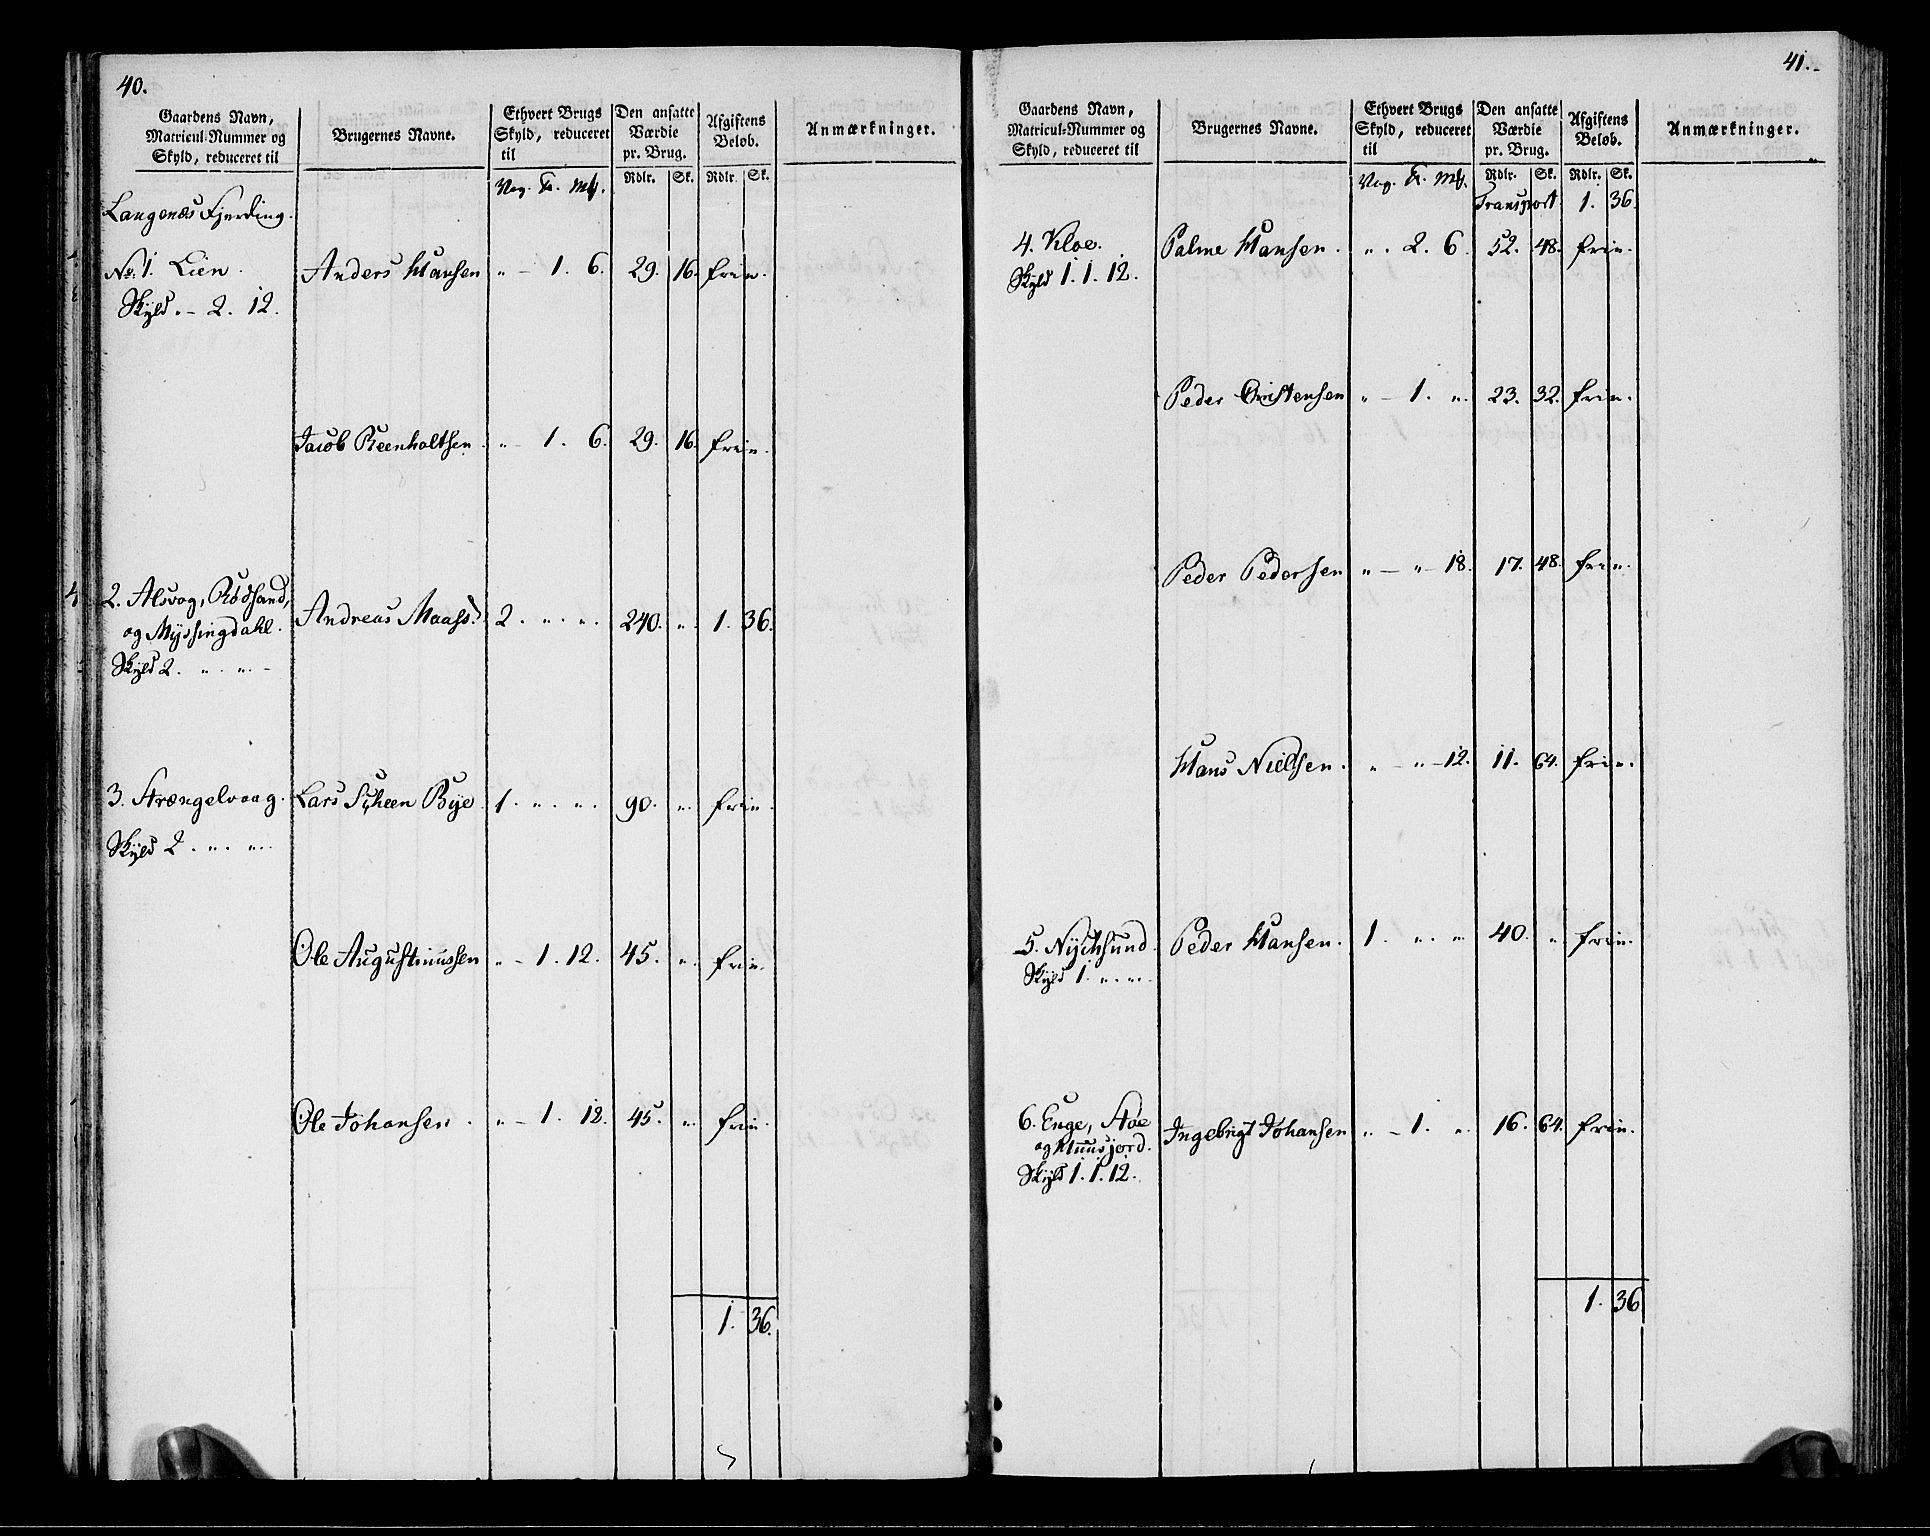 40.
Gaardens Navn, Matricul-Nummer og Skyld, reduceret til
Brugernes Navne.
Ethvert Brugs Skyld, reduceret til
Den ansatte Værdie pr. Brug.
Afgiftens Beløb.
Anmærkninger.
Vog. ℔. Mk.
Rdlr. Sk. Rdlr. Sk.
Langenæs Fjerding.
No. 1. Lien. Anders Hansen „ – 1. 6. 29. 16. frie.
Skyld „ – 2. 12.
Jacob Reenholtsen. „ – 1. 6. 29. 16. frie.
2. Alsvog, Rødsand,
og Myssingdahl. Andreas Maass. 2. „ „ 240. „ 1. 36.
Skyld 2. „ „ –
3. Strængelvaag. Lars Scheen Bye 1. „ „ 90. „ frie.
Skyld 2. „ „
Ole Augustinussen „ – 1. 12. 45. „ frie.
Ole Johansen. „ – 1. 12. 45. „ frie.
1. 36.
41.
Gaardens Navn, Matricul-Nummer og Skyld, reduceret til
Brugernes Navne.
Ethvert Brugs Skyld, reduceret til
Den ansatte Værdie pr. Brug.
Afgiftens Beløb.
Anmærkninger.
Vog. ℔. Mk.
Rdlr. Sk. Rdlr. Sk.
Transport 1. 36.
4. Kloe. Palme Hansen. „ 2. 6. 52. 48. frie.
Skyld 1. 1. 12.
Peder Cristensen „ – 1. „ 23. 32. frie.
Peder Pedersen „ – „ – 18. 17. 48. frie.
Hans Nielsen. „ – „ – 12. 11. 64. frie.
5. Nychsund. Peder Hansen. 1. „ „ 40. „ frie.
Skyld 1. „ „
6. Enge, Støe
og Klunsjord. Ingebrigt Johansen „ – 1. „ 16. 64. frie.
Skyld 1. 1. 12.
1. 36